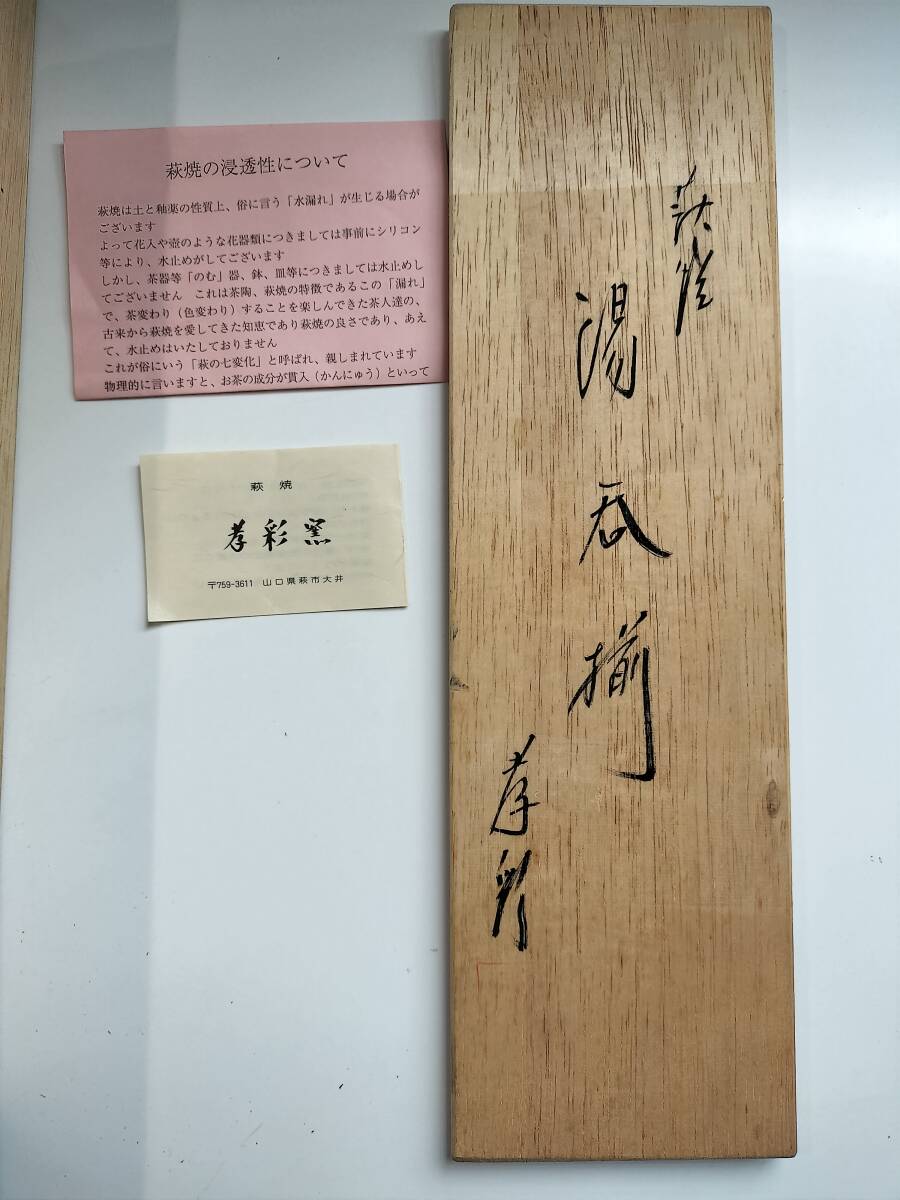 萩焼の浸透性について
萩焼は土と釉薬の性質上、俗に言う「水漏れ」が生じる場合が
ございます
よって花入や壺のような花器類につきましては事前にシリコン
等により、水止めがしてございます
しかし、茶器等「のむ」器、鉢、皿等につきましては水止めし
てございません　これは茶陶、萩焼の特徴であるこの「漏れ」
で、茶変わり（色変わり）することを楽しんできた茶人達の、
古来から萩焼を愛してきた知恵であり萩焼の良さであり、あえ
て、水止めはいたしておりません
これが俗にいう「萩の七変化」と呼ばれ、親しまれています
物理的に言いますと、お茶の成分が貫入（かんにゅう）といって
萩焼
孝彩窯
〒759-3611 山口県萩市大井
萩焼
湯呑揃
孝彩